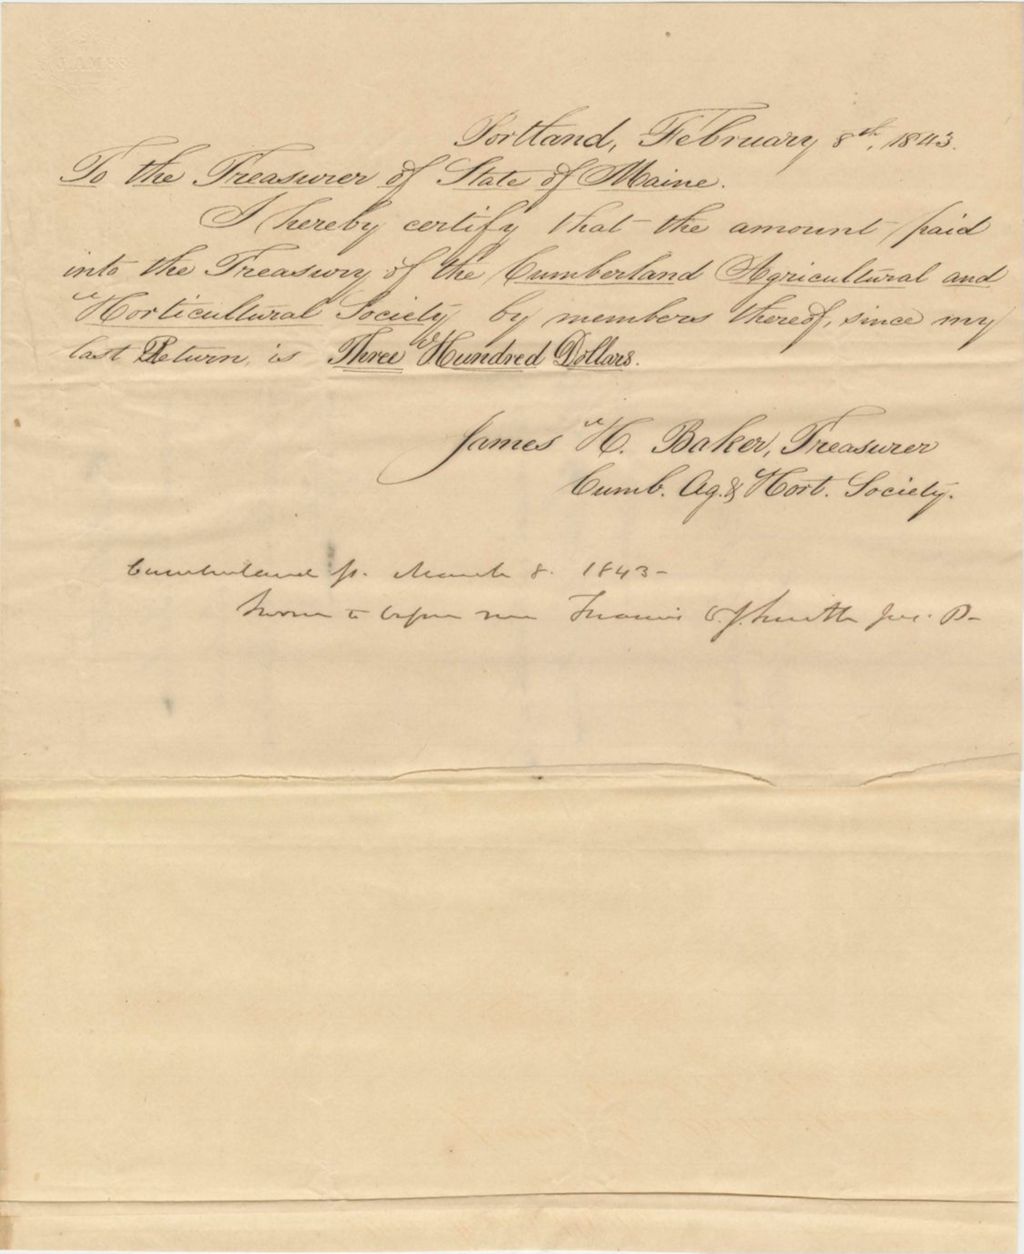 Portland, February 8th, 1843.
To the Treasurer of State of Maine.
I hereby certify that the amount paid
into the Treasury of the Cumberland Agricultural and
Horticultural Society by members thereof, since my
last Return, is Three Hundred Dollars.
James H. Baker, Treasurer
Cumb. Ag. & Hort. Society.
Cumberland ss. March 8. 1843-
Sworn to before me Francis O. J. Smith Jus. P-